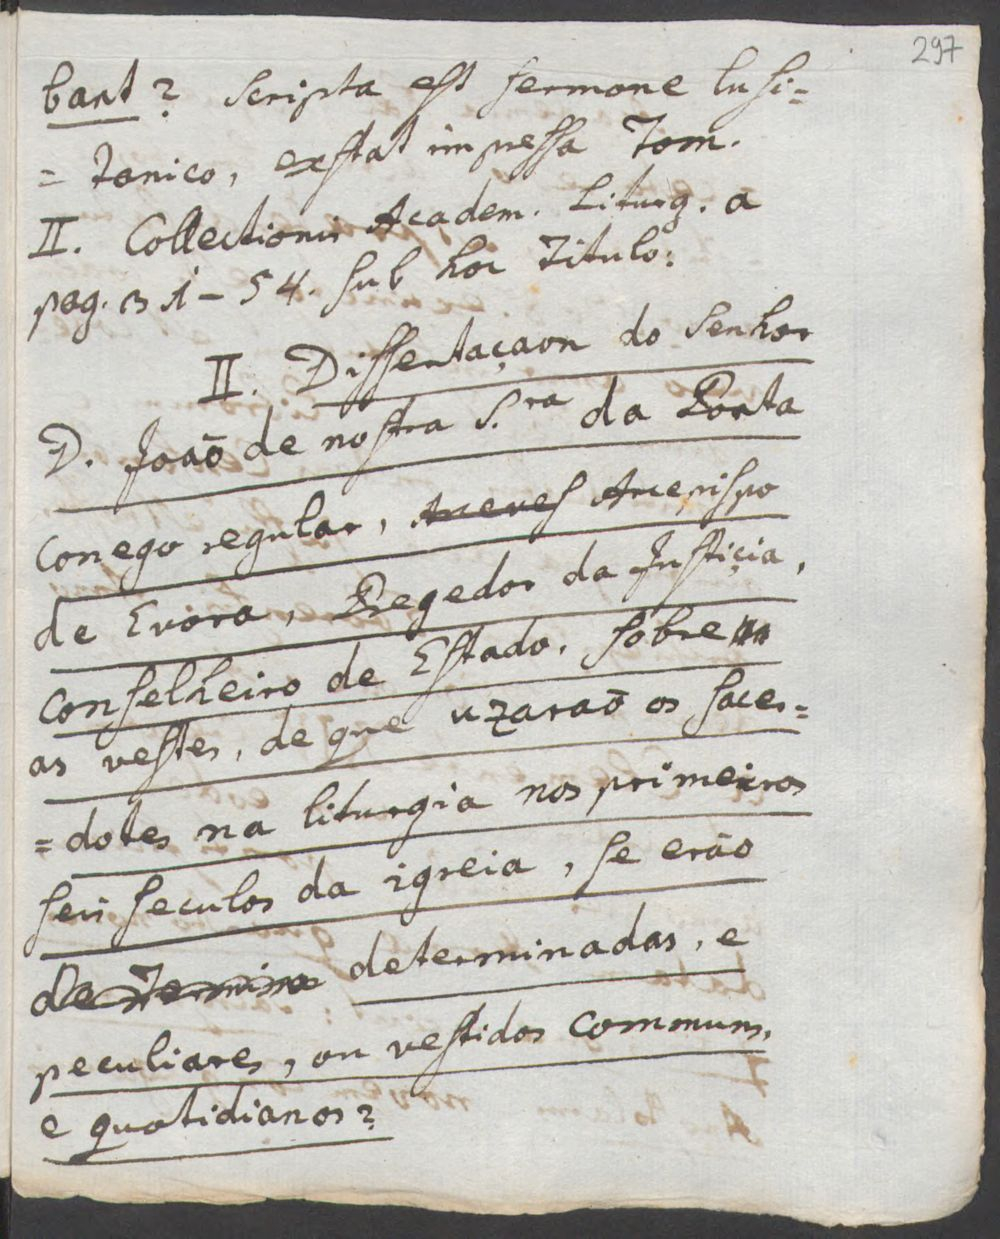 297
bant? Scripta est sermone lusi=
=tanico, exstat impressa Tom.
II. Collectionis Academ. Liturg. a
pag. 31-54. sub hoc Titulo:
II. Dissertaçaon do Senhor
D. Joaõ de nostra S.ra da Porta
Conego regular, Arcepispo
de Evora, Regedor da Justiçia,
Conselheiro de Estado. Sobre
as vestes, de que uzaraõ os sacer=
=dotes na liturgia nos primeiros
seis seculos da igreia, se erão
determinadas, e
peculiares, ou vestidos communs,
e quotidianos?